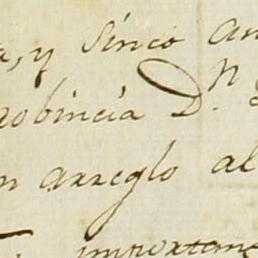 a, y sinco an
robincia D.n
n arreglo al
importan